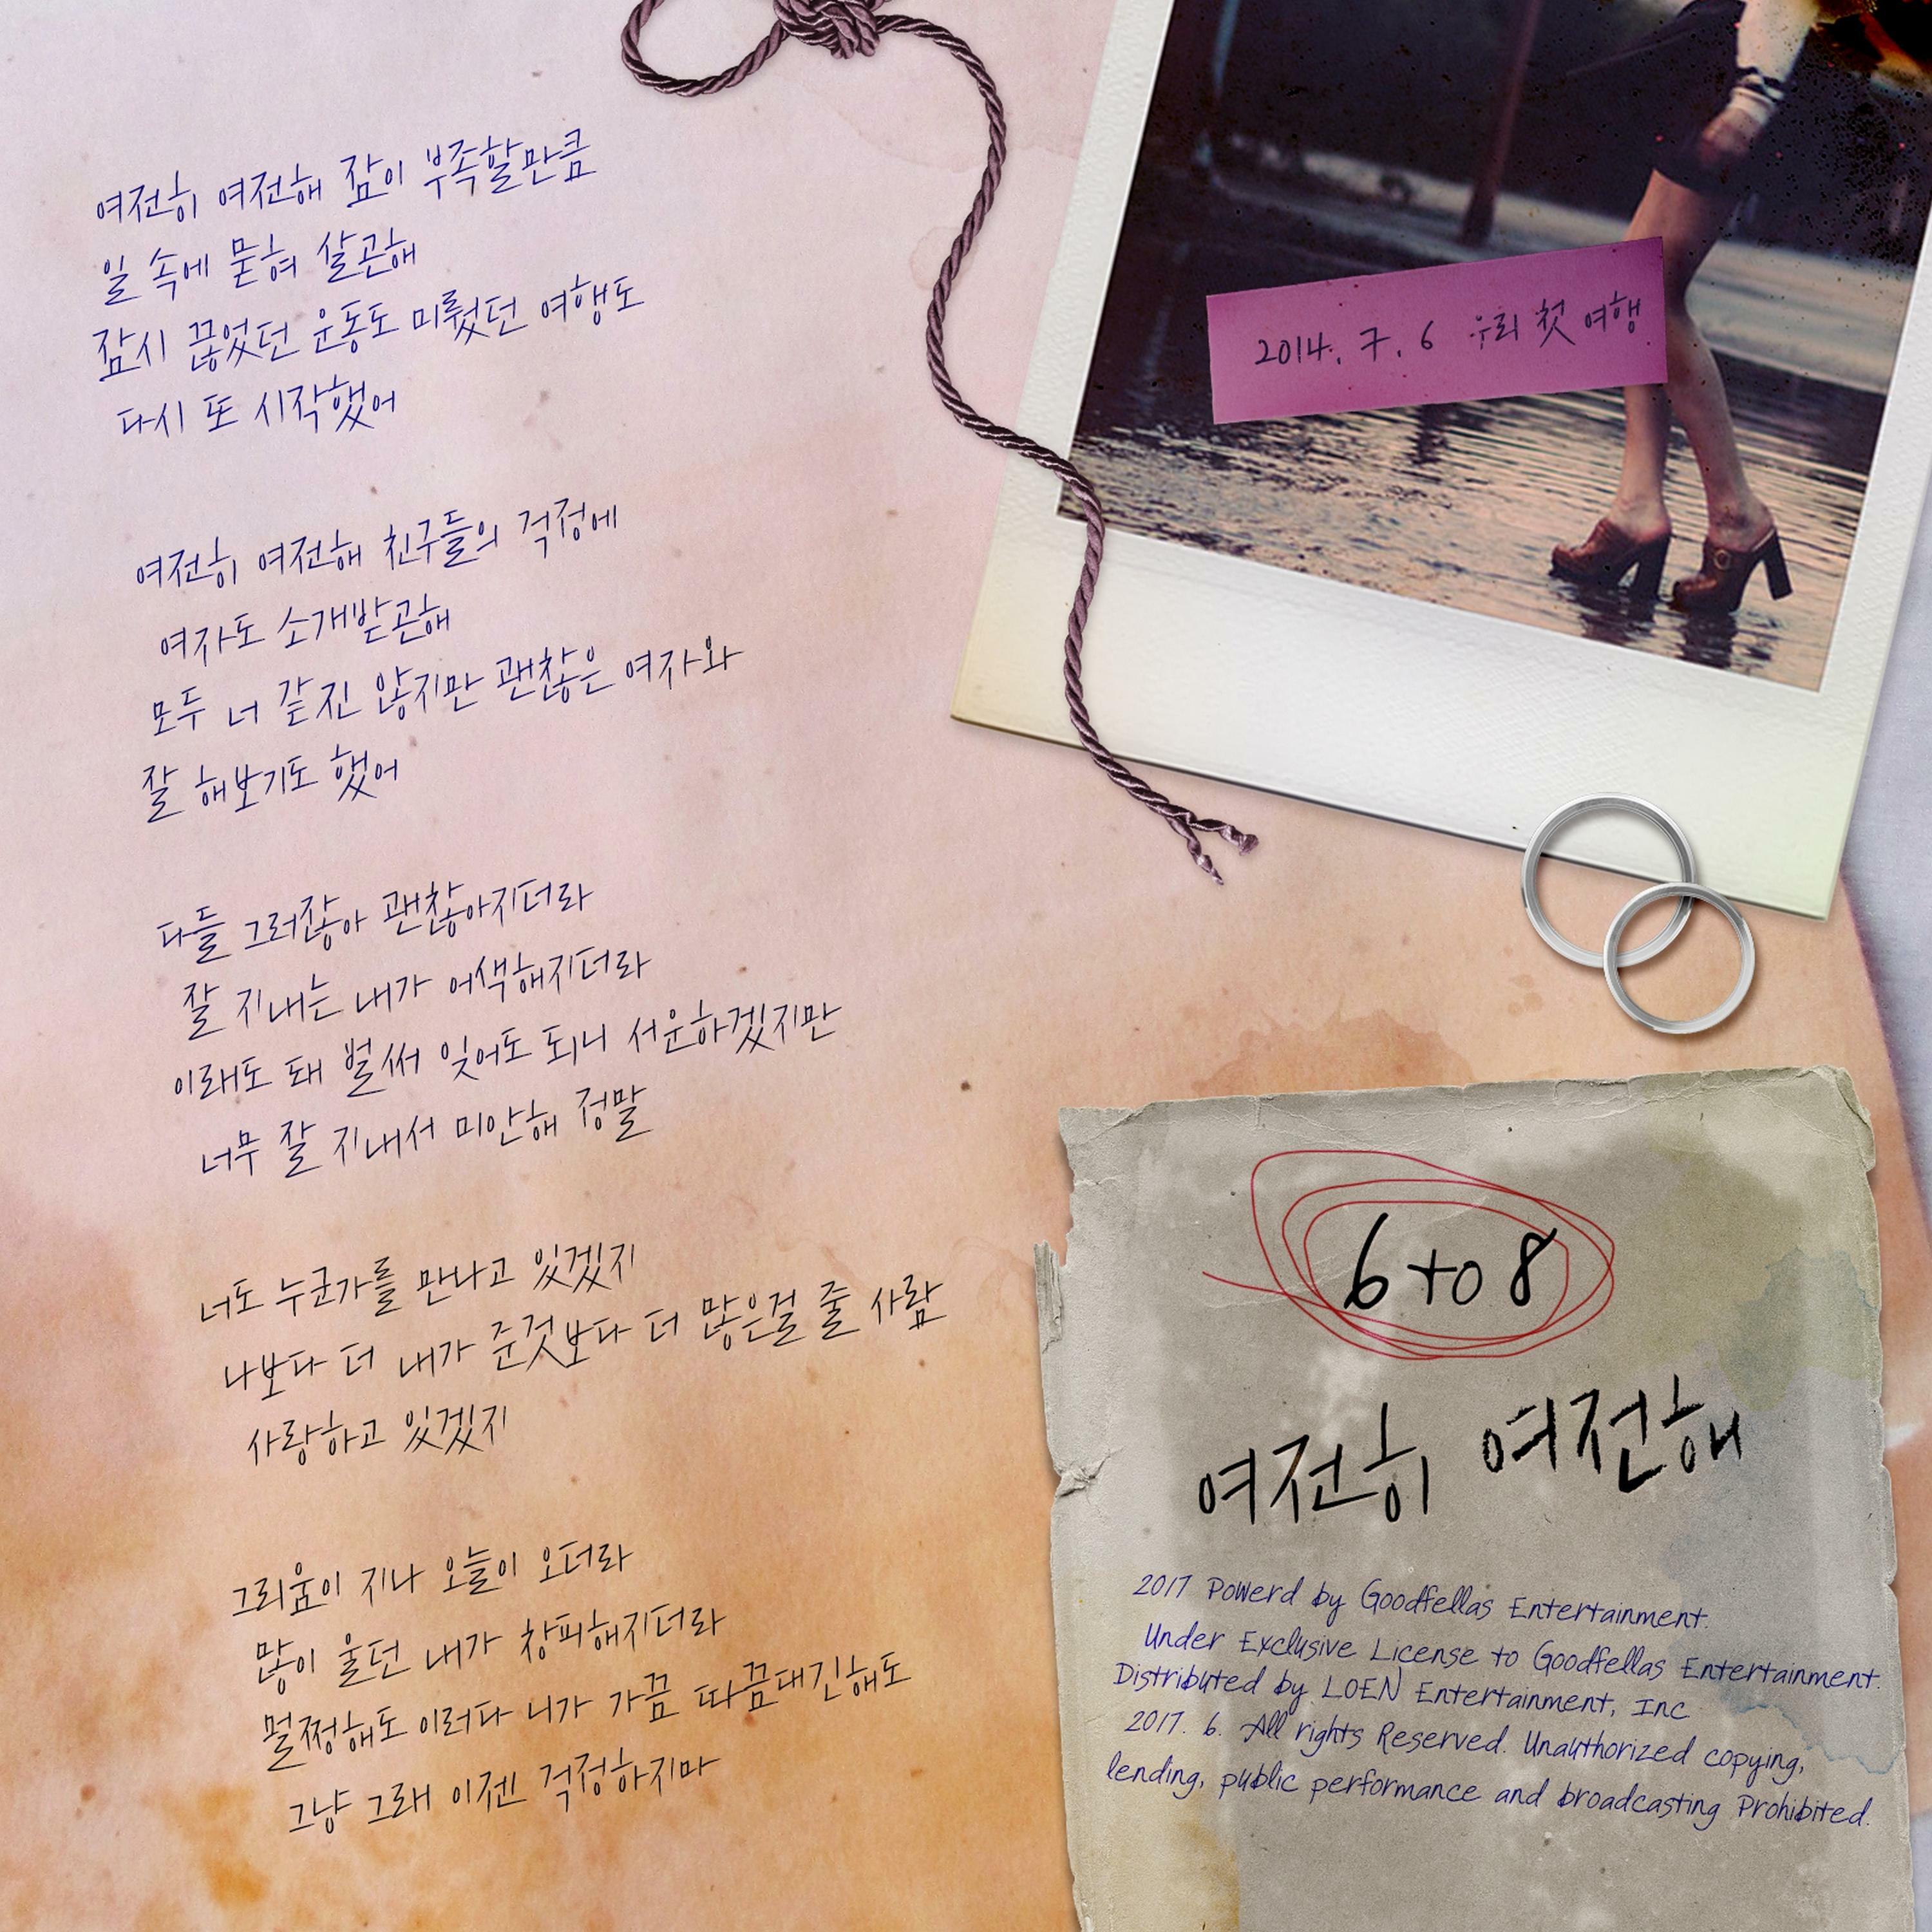 여전히 여전해 잠이 부족할만큼
일 속에 묻혀 살곤해
잠시 끊었던 운동도 미뤘던 여행도
다시 또 시작했어
여전히 여전해 친구들의 걱정에
여자도 소개받곤해
모두 너 같진 않지만 괜찮은 여자와
잘 해보기도 했어
다들 그러잖아 괜찮아지더라
잘 지내는 내가 어색해지더라
이래도 돼 벌써 잊어도 되니 서운하겠지만
너무 잘 지내서 미안해 정말
너도 누군가를 만나고 있겠지
나보다 더 내가 준것보다 더 많은걸 줄 사람
사랑하고 있겠지
그리움이 지나 오늘이 오더라
많이 울던 내가 창피해지더라
멀쩡해도 이러다 니가 가끔 따끔대긴해도
그냥 그래 이젠 걱정하지마
2014. 7. 6 우리 첫 여행
6 to 8
여전히 여전해
2017 Powerd by Goodfellas Entertainment.
Under Exclusive License to Goodfellas Entertainment.
Distributed by LOEN Entertainment, Inc
2017. 6. All rights Reserved. Unauthorized copying,
lending, public performance and broadcasting Prohibited.